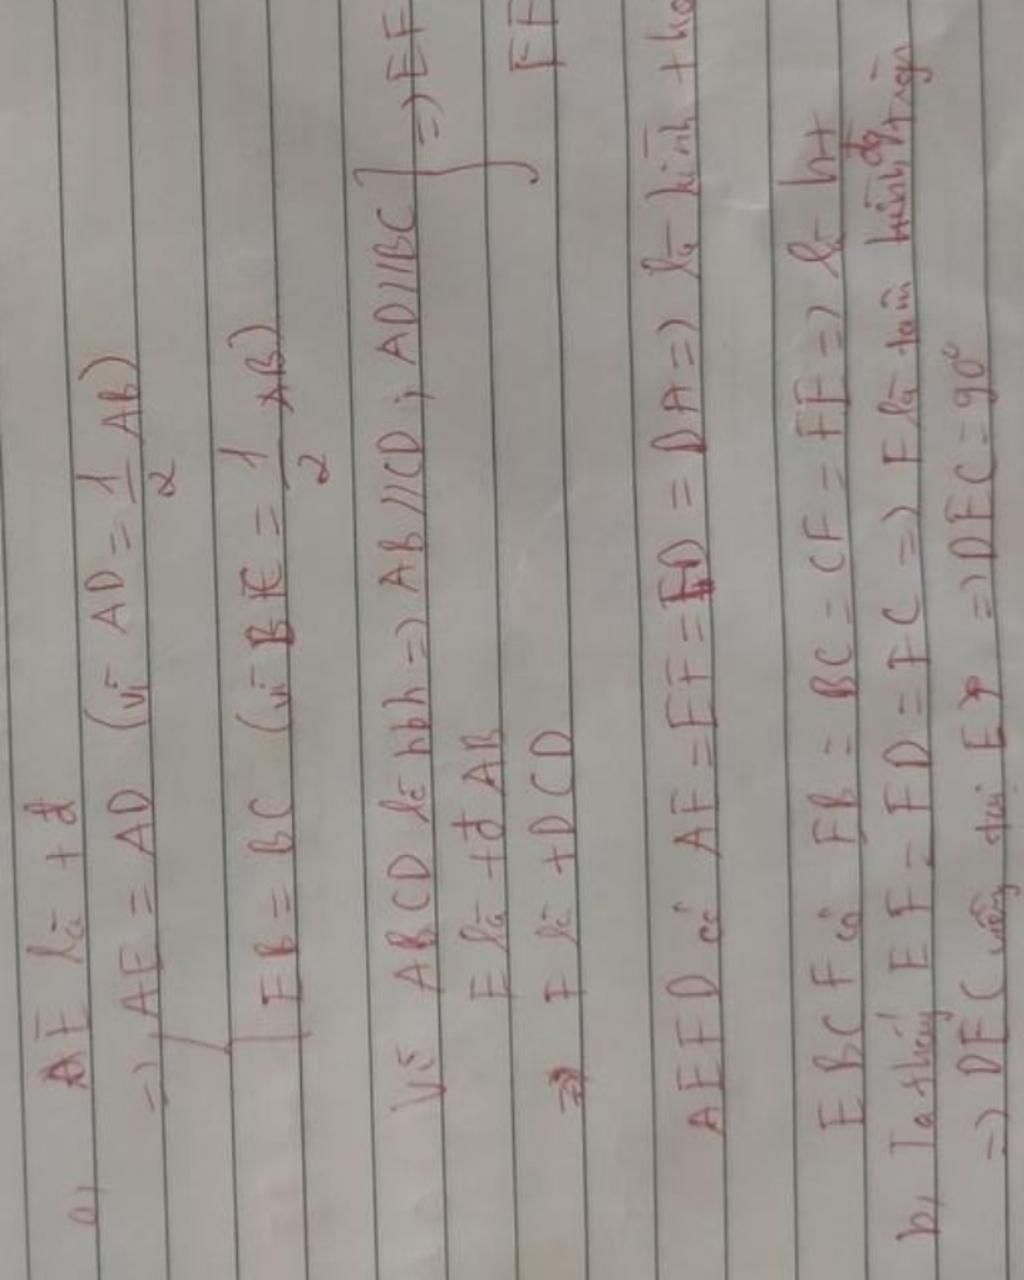 a, AE là tđ
=> AE = AD (vì AD = 1/2 AB)
EB = BC (vì BC = 1/2 AB)
Vì ABCD là hbh => AB//CD; AD//BC } => EF
E là tđ AB EF
F là tD CD
AEFD có AF = EF = FD = DA => là hình tho
EBCF có EB = BC = CF = FE => là ht
b, Ta thấy EF = FD = FC => F là tâm hình tròn
=> DEC vuông tại E => DEC = 90°